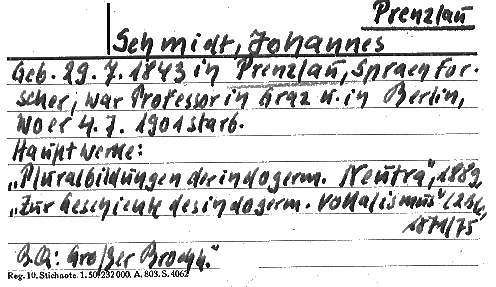 Prenzlau
Schmidt, Johannes
Geb. 29. 7. 1843 in Prenzlau, Sprachfor-
scher, war Professor in Graz u. in Berlin,
wo er 4. 7. 1901 starb.
Hauptwerke:
„Pluralbildungen der indogerm. Neutra", 1889
„Zur Geschichte des indogerm. Vokalismus" (2
1871/75
Großer Brockh."
Reg. 10. Stichnote. 1. 50. 232000. A. 803. S. 4062